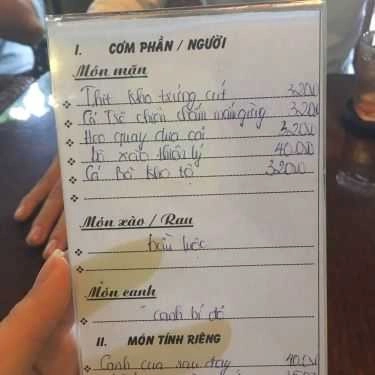 I. CƠM PHẦN / NGƯỜI
Món mặn
Thịt kho trứng cút 32.000
Cá Trê chiên chấm mắm gừng 32.000
Heo quay dưa cải 32.000
Bò xào thiên lý 40.000
Cá Bò kho tộ 32.000
Món xào / Rau
Bầu luộc
Món canh
canh bí đỏ
II. MÓN TÍNH RIÊNG
Canh cua rau đay